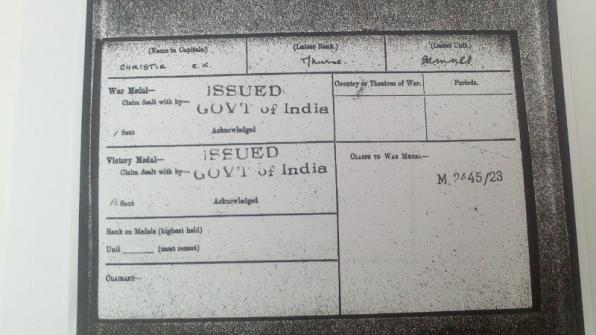 (Name in Capitals) (Latest Rank.) (Latest Unit.)
CHRISTIE E.K. T/Nurse.
War Medal— ISSUED Country or Theatres of War. Periods.
Claim dealt with by— GOVT of India
/ Sent Acknowledged
Victory Medal— ISSUED CLASPS TO WAR MEDAL—
Claim dealt with by— GOVT of India M.2645/23
Sent Acknowledged
Rank on Medals (highest held)
Unit ______ (most recent)
CLAIMANT—